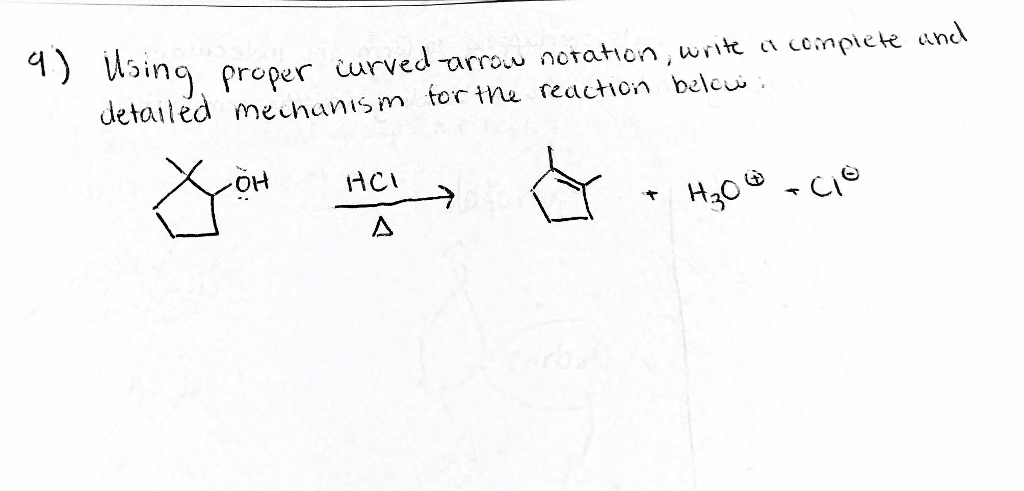 9.) Using proper curved-arrow notation, write a complete and
detailed mechanism for the reaction below:
ÖH HCl + H₃O⊕ + Cl⊖
Δ